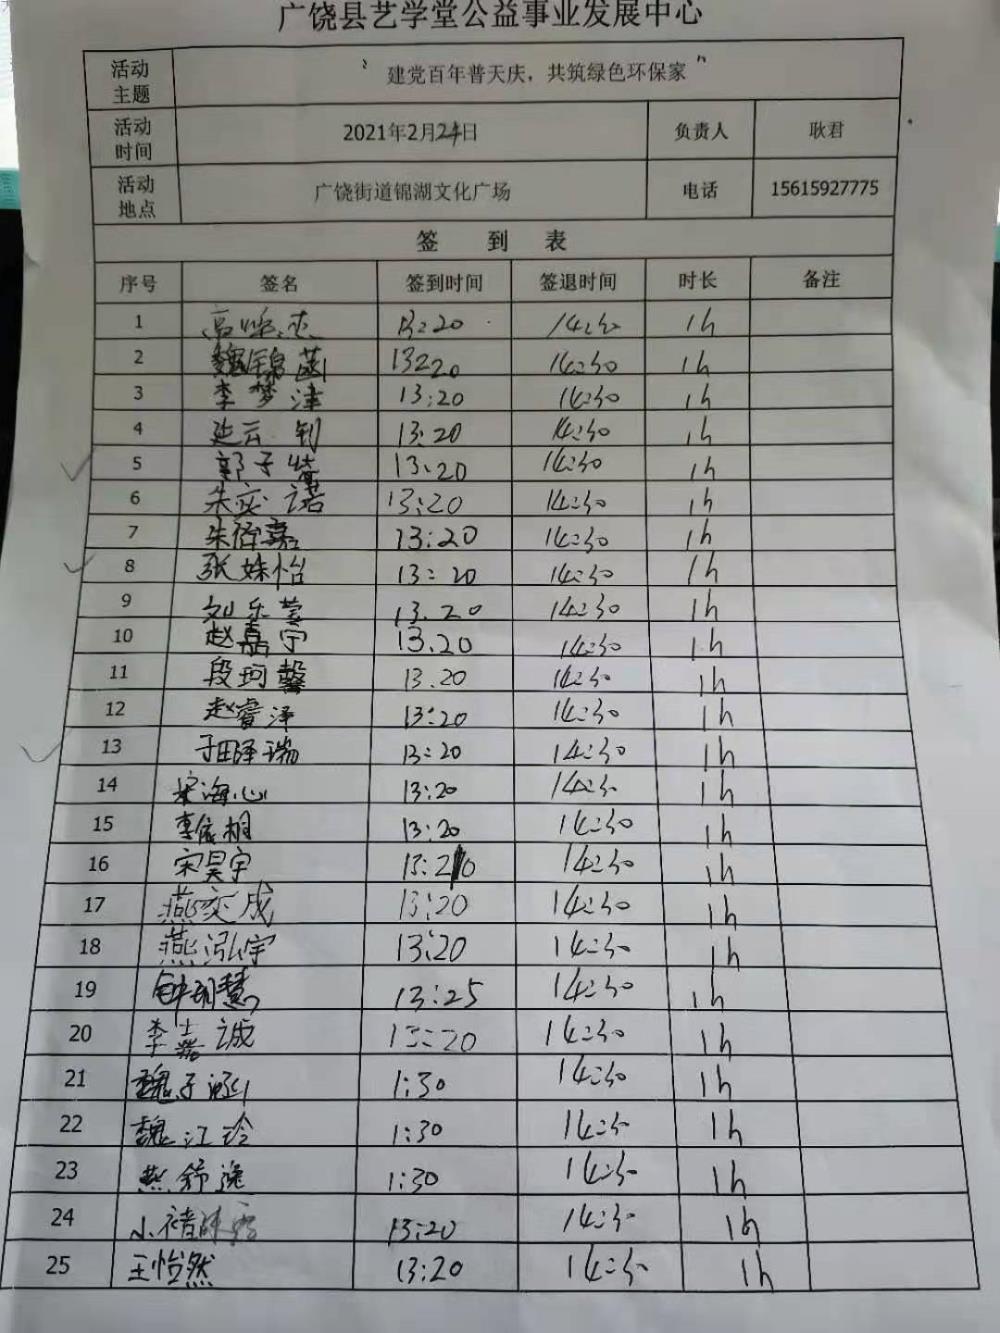 广饶县艺学堂公益事业发展中心
活动主题 "建党百年普天庆，共筑绿色环保家"
活动时间 2021年2月24日 负责人 耿君
活动地点 广饶街道锦湖文化广场 电话 15615927775
签 到 表
序号 签名 签到时间 签退时间 时长 备注
1 13:20 14:30 1h
2 魏锦菡 1320 14:30 1h
3 李梦津 13:20 14:30 1h
4 延云钊 13:20 14:30 1h
5 郭子 13:20 14:30 1h
6 朱奕诺 13:20 14:30 1h
7 朱 嘉 13:20 14:30 1h
8 张姝怡 13:20 14:30 1h
9 刘乐萱 13.20 14:30 1h
10 赵嘉宁 13.20 14:30 1h
11 段珂馨 13.20 14:30 1h
12 赵睿泽 13:20 14:30 1h
13 于田泽瑞 13:20 14:30 1h
14 海心 13:20 14:30 1h
15 李依桐 13:20 14:30 1h
16 宋昊宇 13:20 14:30 1h
17 燕奕成 13:20 14:30 1h
18 燕泓宇 13:20 14:30 1h
19 钟玥慧 13:25 14:30 1h
20 李嘉诚 13:20 14:30 1h
21 魏子涵 1:30 14:30 1h
22 魏江玲 1:30 14:30 1h
23 燕舒逸 1:30 14:30 1h
24 小褚 13:20 14:30 1h
25 王怡然 13:20 14:30 1h